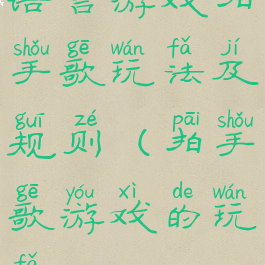 语言游戏拍
shǒu gē wán fǎ jí
手歌玩法及
guī zé pāi shǒu
规则（拍手
gē yóu xì de wán
歌游戏的玩
fǎ